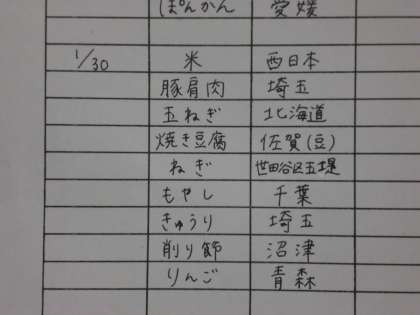 ぽんかん 愛媛
1/30 米 西日本
豚肩肉 埼玉
玉ねぎ 北海道
焼き豆腐 佐賀(豆)
ねぎ 世田谷区五堤
もやし 千葉
きゅうり 埼玉
削り節 沼津
りんご 青森